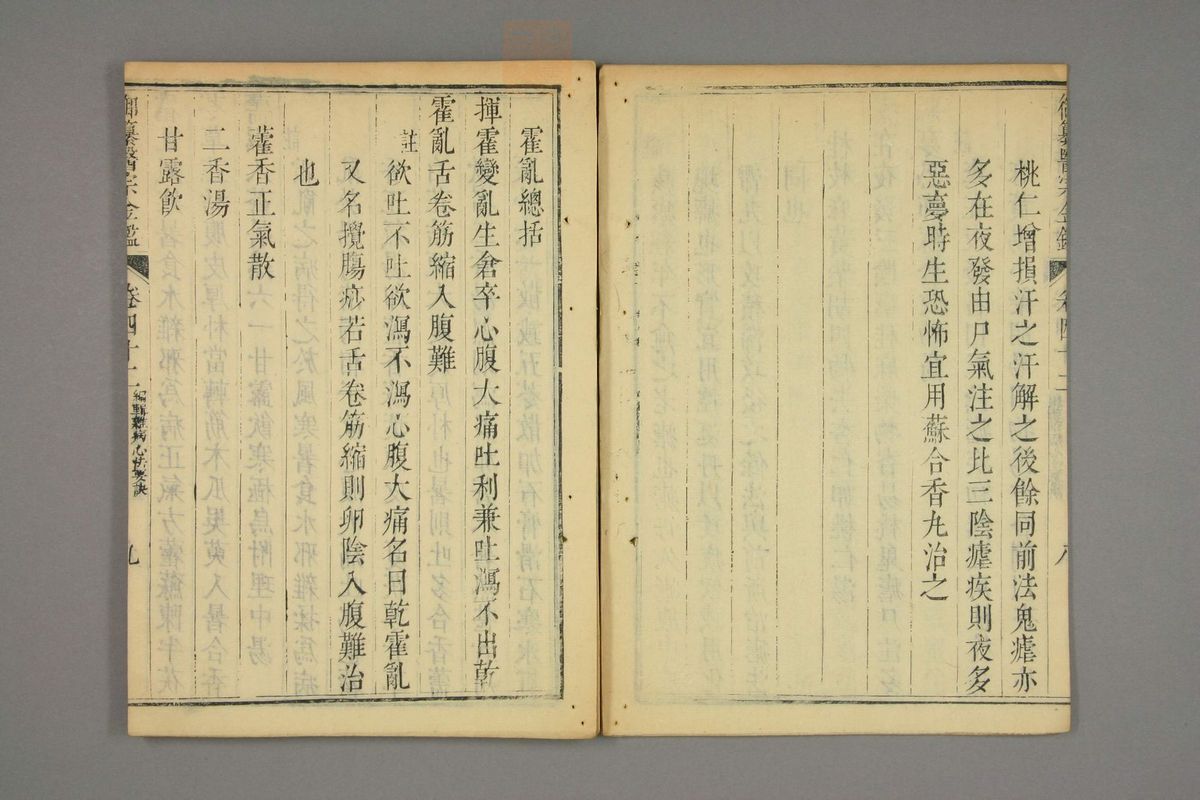 桃仁增損汗之汗解之後餘同前法鬼瘧亦
多在夜發由尸氣注之比三陰瘧疾則夜多
惡夢時生恐怖宜用蘇合香丸治之
卷四十二
八
霍亂總括
揮霍變亂生倉卒心腹大痛吐利兼吐瀉不出乾
霍亂舌卷筋縮入腹難
註
欲吐不吐欲瀉不瀉心腹大痛名曰乾霍亂
又名攪腸痧若舌卷筋縮則卵陰入腹難治
也
藿香正氣散
二香湯
甘露飲
御纂醫宗金鑑
卷四十二
編輯雜病心法要訣
九